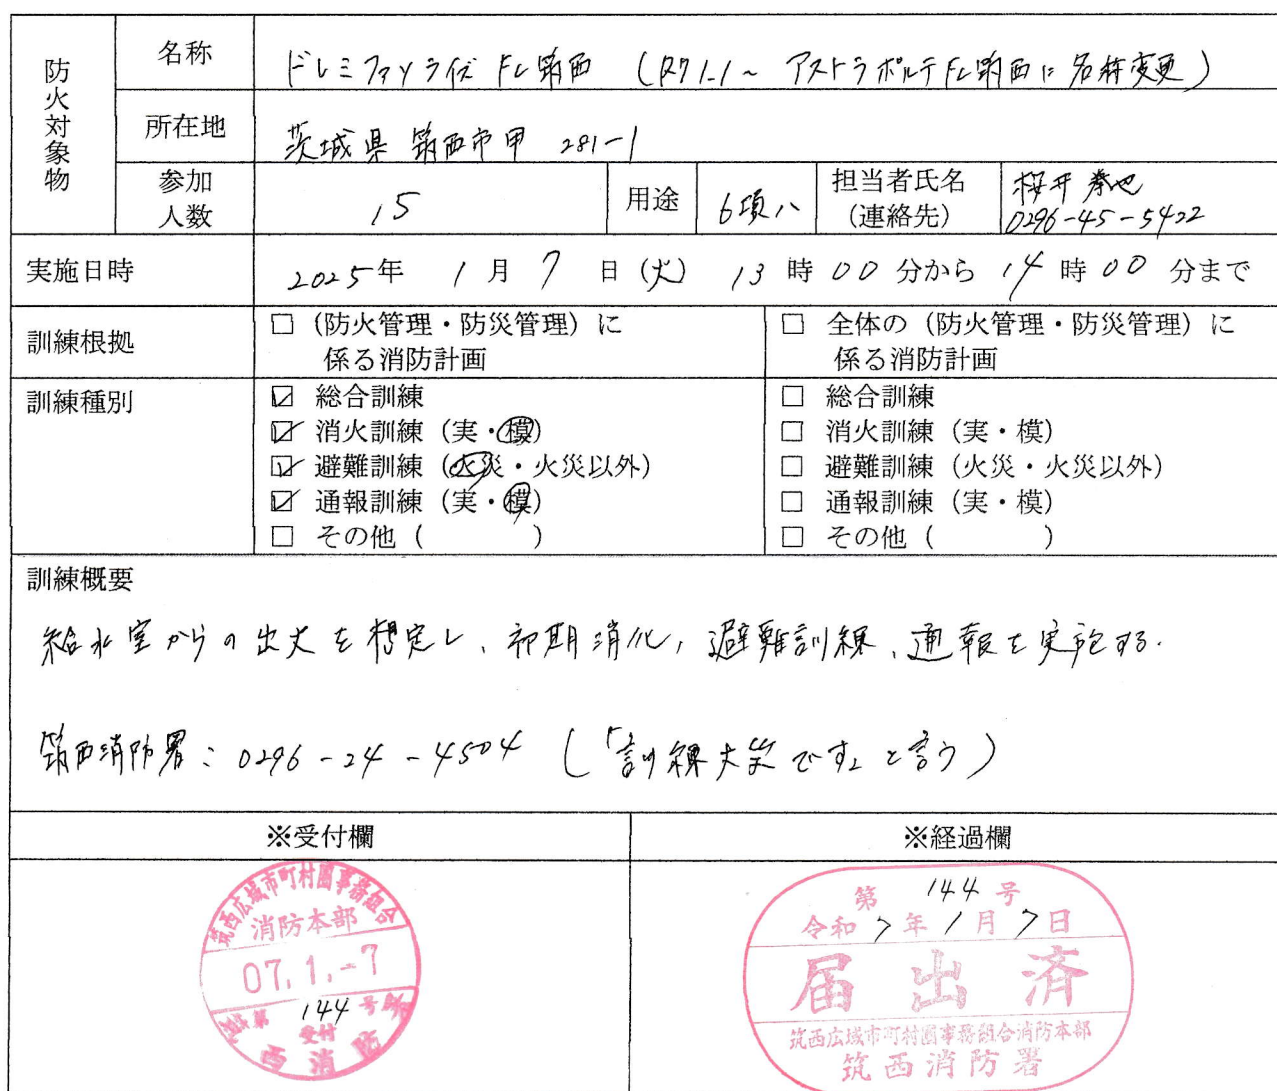 防火対象物
名称 ドレミファソライズFC筑西 (R7 1.1～ アストラポルテFC筑西に名称変更)
所在地 茨城県筑西市甲 281-1
参加人数 15 用途 6項ハ 担当者氏名(連絡先) 桜井
0296-45-5422
実施日時 2025年 1月 7日(火) 13時00分から 14時00分まで
訓練根拠 □ (防火管理・防災管理)に □ 全体の(防火管理・防災管理)に
係る消防計画 係る消防計画
訓練種別 ☑ 総合訓練 □ 総合訓練
☑ 消火訓練(実・模) □ 消火訓練(実・模)
☑ 避難訓練(火災・火災以外) □ 避難訓練(火災・火災以外)
☑ 通報訓練(実・模) □ 通報訓練(実・模)
□ その他( ) □ その他( )
訓練概要
給水室からの出火を想定し、初期消火,避難訓練、通報を実施する.
筑西消防署:0296-24-4504 (「訓練火災です」と言う)
※受付欄 ※経過欄
筑西広域市町村圏事務組合
消防本部
07.1.-7
第144号
受付
筑西消防署
第 144 号
令和7年1月7日
届出済
筑西広域市町村圏事務組合消防本部
筑西消防署